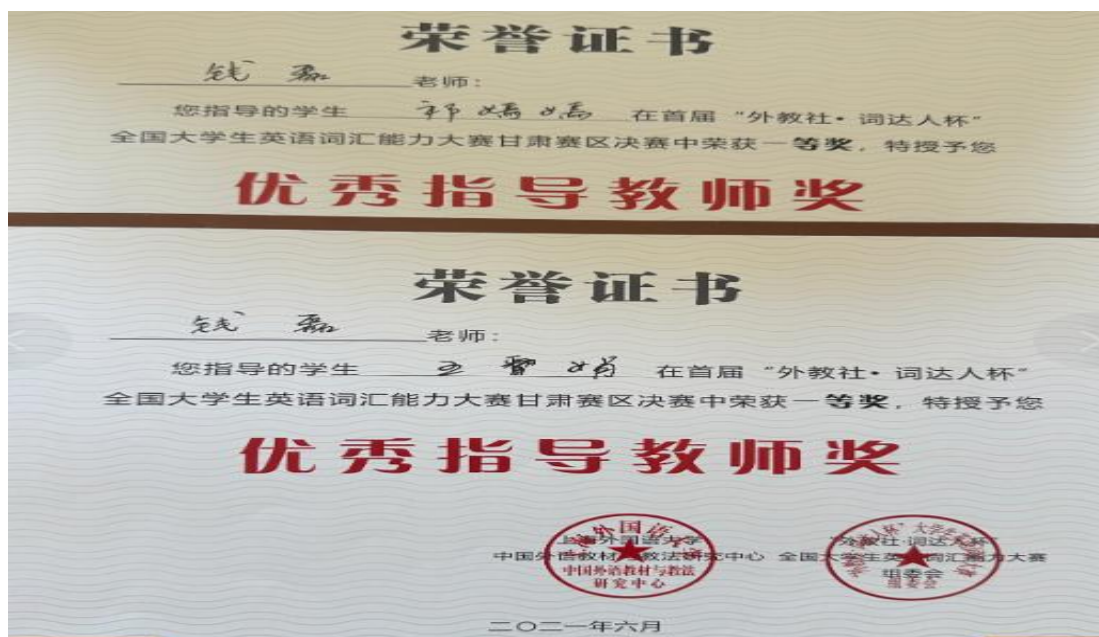 荣誉证书
钱磊 老师:
您指导的学生 郭嫣嫣 在首届“外教社·词达人杯”
全国大学生英语词汇能力大赛甘肃赛区决赛中荣获一等奖，特授予您
优秀指导教师奖
荣誉证书
钱磊 老师:
您指导的学生 王 娟 在首届“外教社·词达人杯”
全国大学生英语词汇能力大赛甘肃赛区决赛中荣获一等奖，特授予您
优秀指导教师奖
上海外国语大学 “外教社·词达人杯”
中国外语教材与教法研究中心 全国大学生英语词汇能力大赛
组委会
中国外语教材与教法
研究中心
组委会
二〇二一年六月